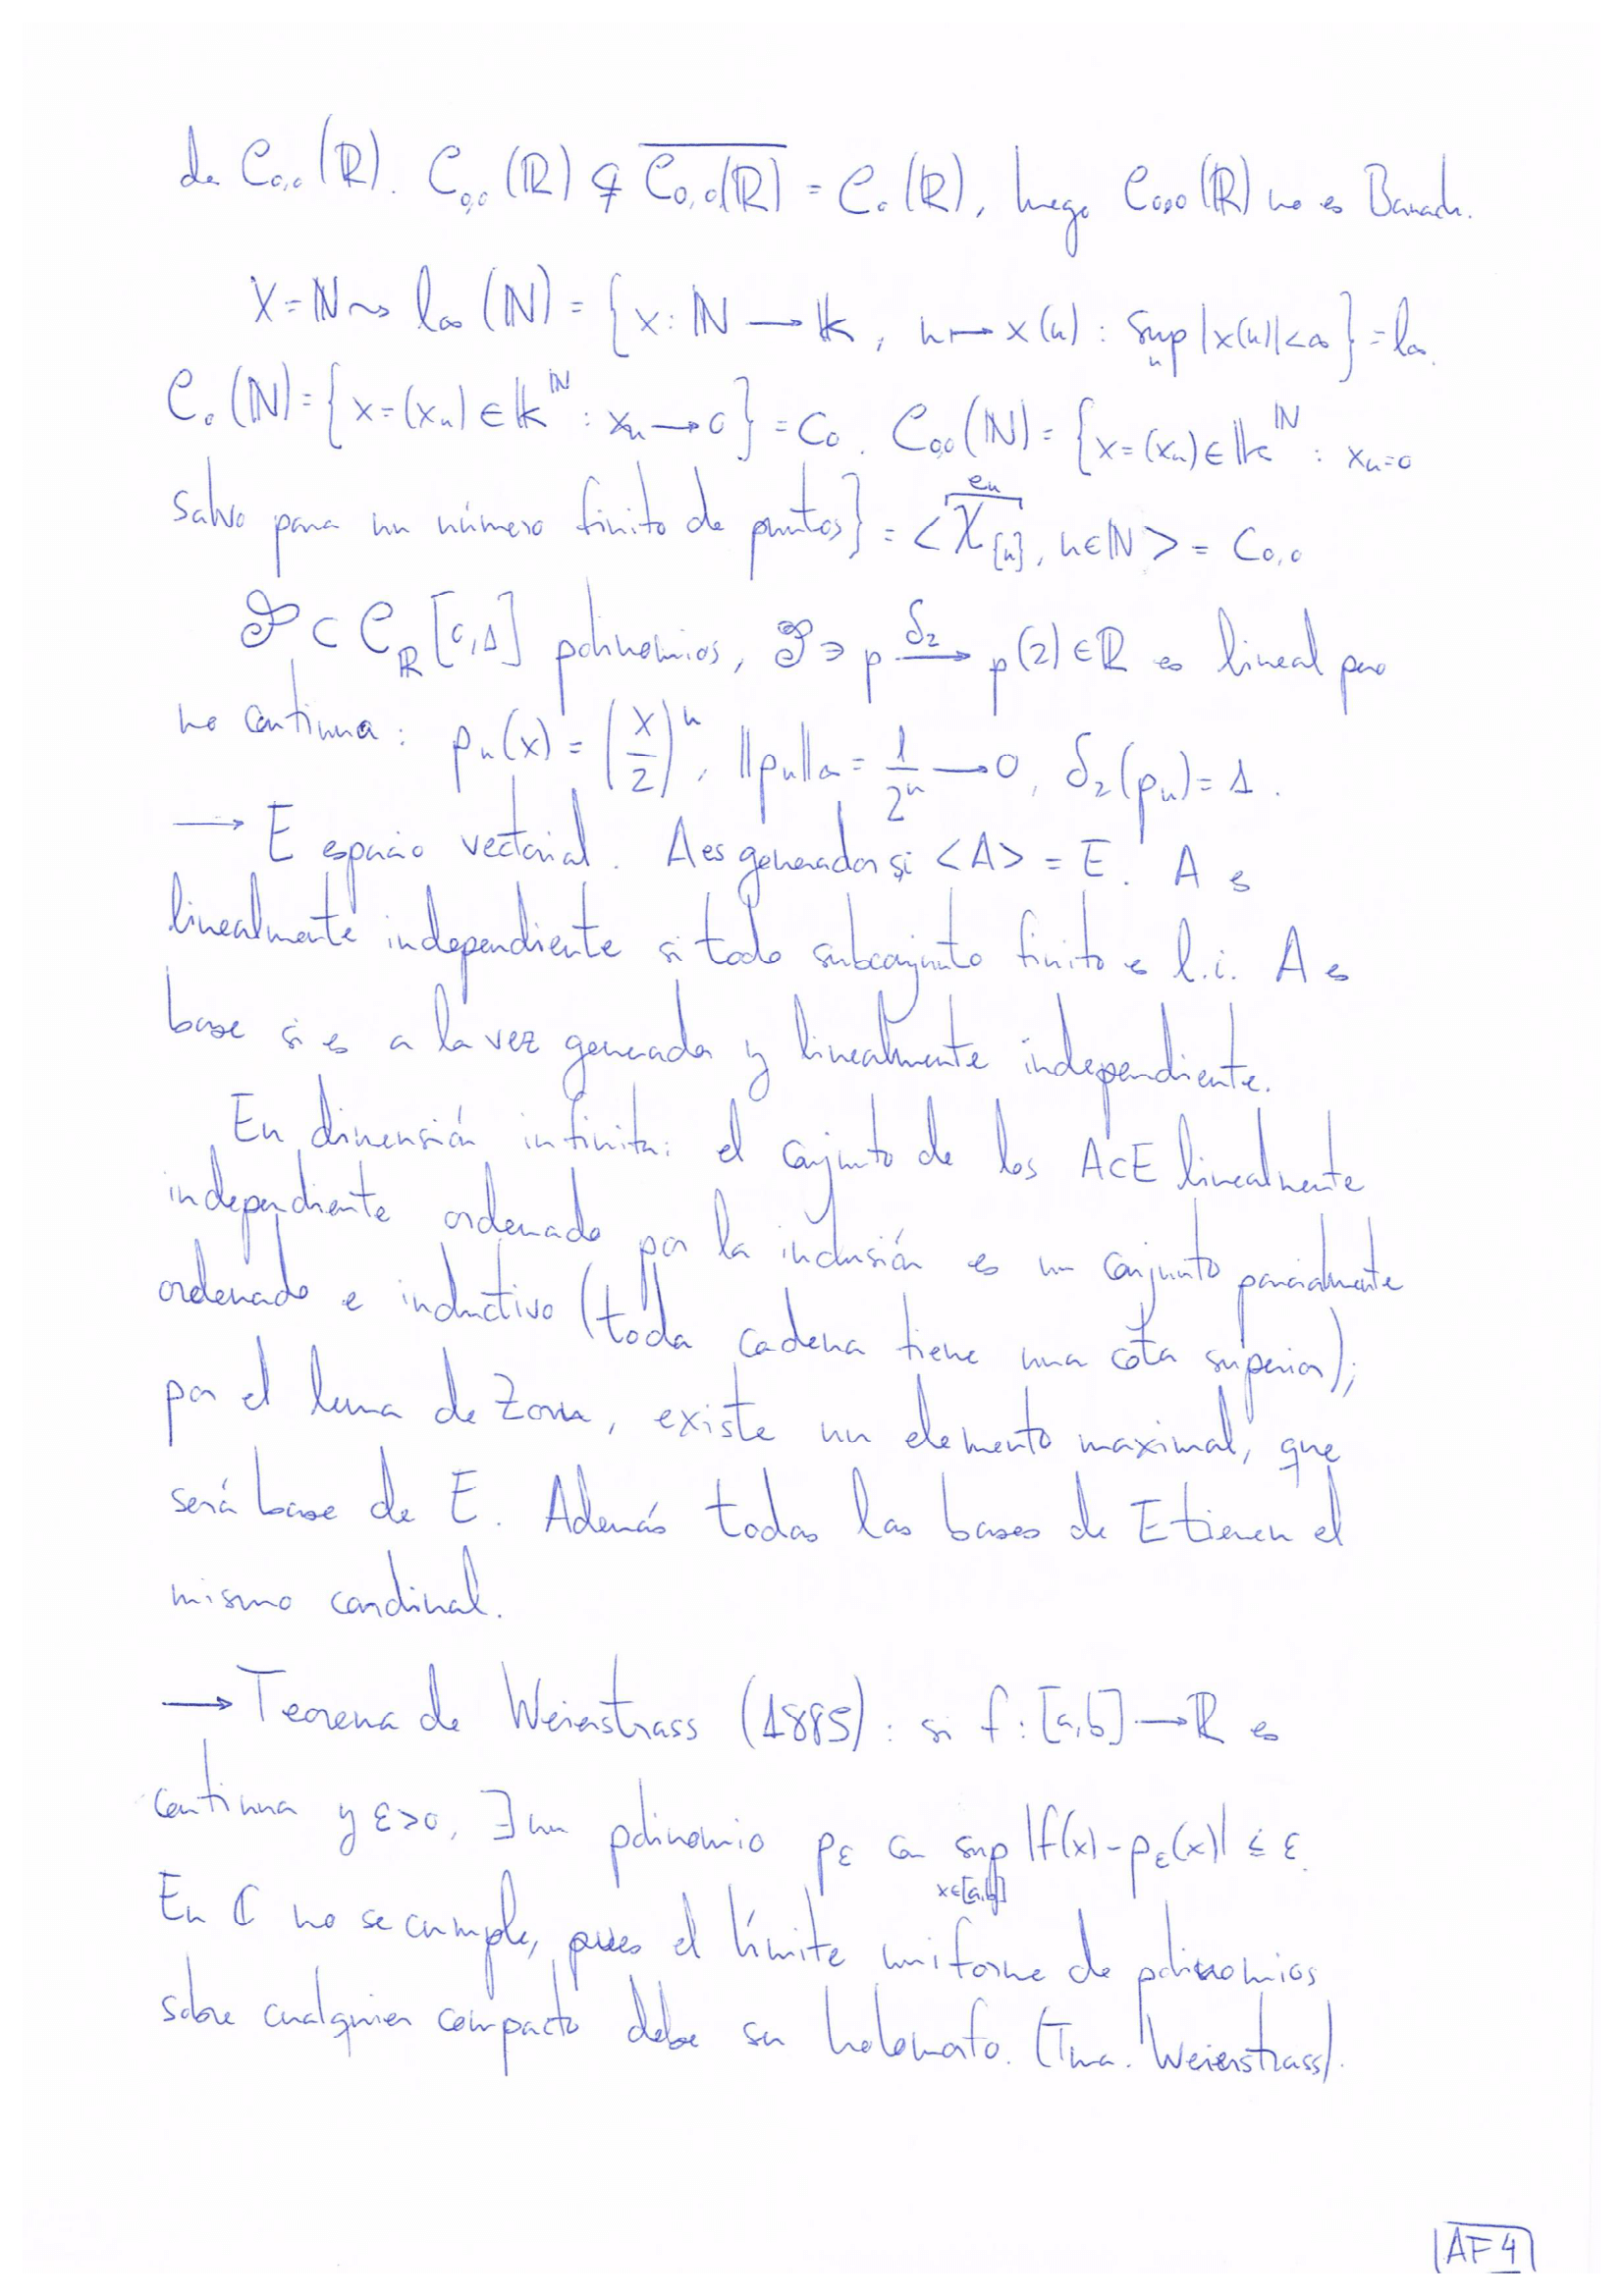 de C₀,₀(ℝ). C₀,₀(ℝ) ⊊ \overline{C₀,₀(ℝ)} = C₀(ℝ), luego C₀,₀(ℝ) no es Banach.
X = ℕ ⇝ l∞(ℕ) = {x: ℕ → 𝕂, n ↦ x(n) : sup_n |x(n)| < ∞} = l∞.
C₀(ℕ) = {x = (xₙ) ∈ 𝕂^ℕ : xₙ → 0} = c₀. C₀,₀(ℕ) = {x = (xₙ) ∈ 𝕂^ℕ : xₙ = 0
salvo para un número finito de puntos} = <\overbrace{χ_{[n]}}^{eₙ}, n ∈ ℕ> = c₀,₀
𝒫 ⊂ C_ℝ[0,1] polinomios, 𝒫 ∋ p \xrightarrow{δ₂} p(2) ∈ ℝ es lineal pero
no continua: pₙ(x) = (x/2)ⁿ, ||pₙ||∞ = 1/2ⁿ → 0, δ₂(pₙ) = 1.
→ E espacio vectorial. A es generador si <A> = E. A es
linealmente independiente si todo subconjunto finito es l.i. A es
base si es a la vez generador y linealmente independiente.
En dimensión infinita: el conjunto de los A⊂E linealmente
independiente ordenado por la inclusión es un conjunto parcialmente
ordenado e inductivo (toda cadena tiene una cota superior);
por el lema de Zorn, existe un elemento maximal, que
será base de E. Además todas las bases de E tienen el
mismo cardinal.
→ Teorema de Weierstrass (1885): si f: [a,b] → ℝ es
continua y ε>0, ∃ un polinomio p_ε con sup_{x∈[a,b]} |f(x) - p_ε(x)| ≤ ε.
En ℂ no se cumple, pues el límite uniforme de polinomios
sobre cualquier compacto debe ser holomorfo. (Tma. Weierstrass).
AF 4